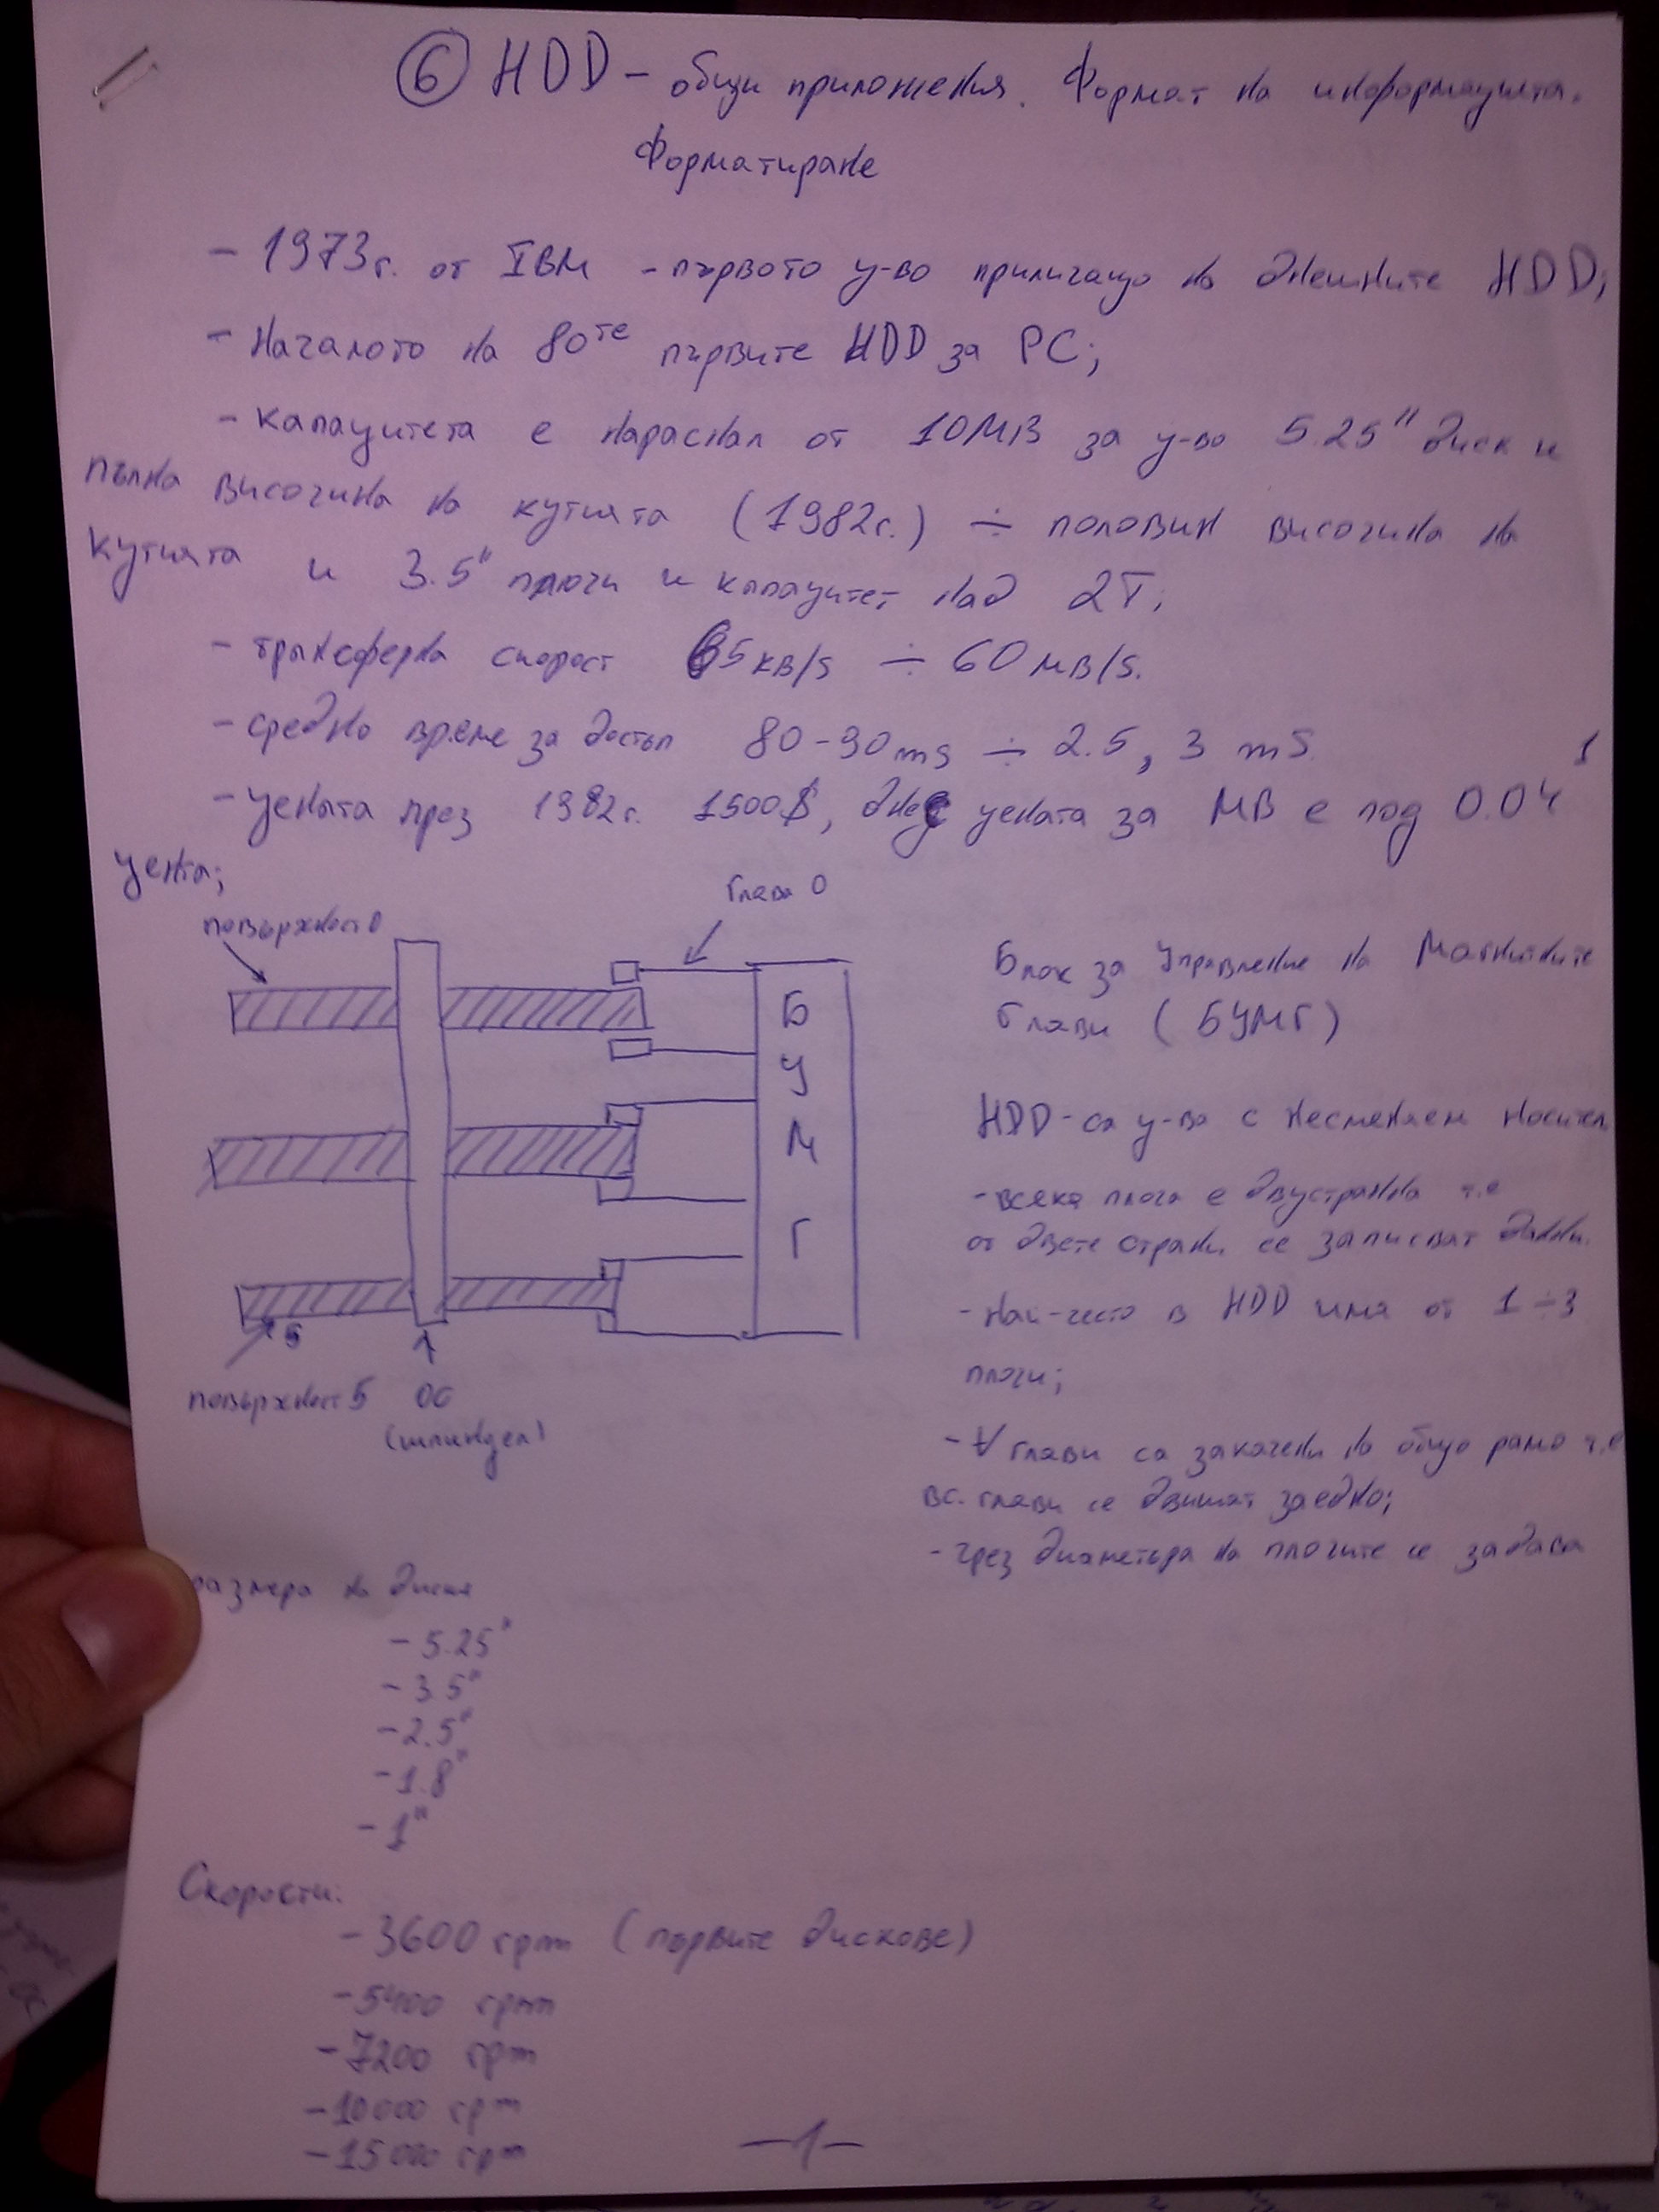 ⑥ HDD – общи приложения. Формат на информацията.
Форматиране
- 1973г. от IBM - първото у-во приличащо на днешните HDD;
- Началото на 80те първите HDD за PC;
- капацитета е нараснал от 10MB за у-во 5.25" диск и
пълна височина на кутията (1982г.) ÷ половин височина на
кутията и 3.5" плочи и капацитет над 2T.
- трансферна скорост 65KB/s ÷ 60MB/s.
- средно време за достъп 80-90ms ÷ 2.5, 3 ms
- цената през 1982г. 1500$, днес цената за MB е под 0.04
цента;
повърхност 0
глава 0
Б
У
М
Г
повърхност 5
ОС
(шпиндел)
Блок за Управление на Магнитните
Глави (БУМГ)
HDD - са у-ва с несменяем носител
- всяка плоча е двустранна т.е
от двете страни се записват данни.
- Най-често в HDD има от 1÷3
плочи;
- ∀ глави са закачени на общо рамо т.е
вс. глави се движат заедно;
- чрез диаметъра на плочите се задава
размера на диска
- 5.25"
- 3.5"
- 2.5"
- 1.8"
- 1"
Скорости:
- 3600 rpm (първите дискове)
- 5400 rpm
- 7200 rpm
- 10000 rpm
- 15000 rpm
—1—